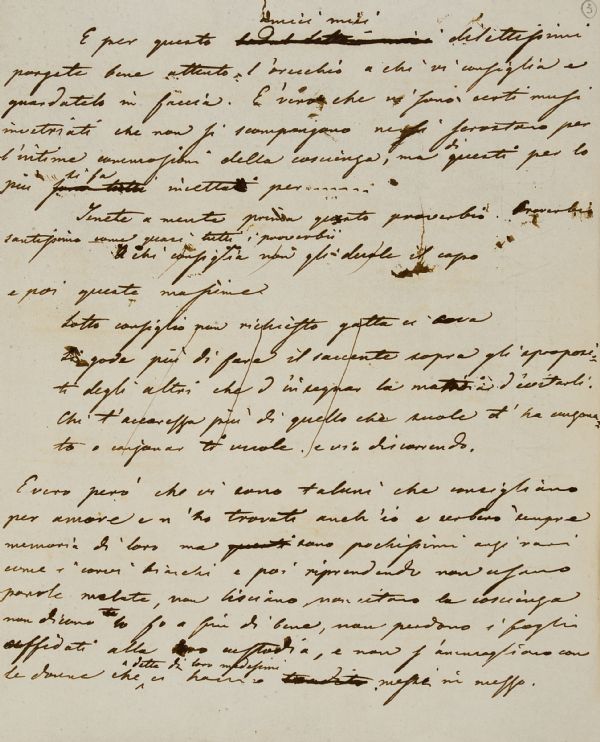 3
amici miei
E per questo dilettissimi
porgete bene attento l'orecchio a chi vi consiglia e
guardatelo in faccia. E' vero che vi sono certi musi
invetriati che non si scompongono per
l'intime commozioni della coscienza, ma di questi per lo
più si fa incetta per.......
Tenete a mente prima questo proverbio. Proverbio
santissimo come quasi tutti i proverbii
A chi consiglia non gli duole il capo
e poi queste massime.
Sotto consiglio non richiesto gatta ci cova
Si gode più di fare il saccente sopra gli spropositi-
ti degli altri che d'insegnar la d'evitarli.
Chi t'accarezza più di quello che suole o t'ha ingana-
to o ingannar ti vuole. e via discorrendo.
E vero però che vi sono taluni che consigliano
per amore e n'ho trovati anch'io e serberò sempre
memoria di loro ma sono pochissimi
come i corvi bianchi e poi riprendendo non usano
parole melate, non lisciano, la coscienza
non dicono te lo fo a fin di bene, non perdono i fogli
affidati alla loro custodia, e non s'immischiano con
le donne che a detta di loro medesimi ci hanno messi in mezzo.